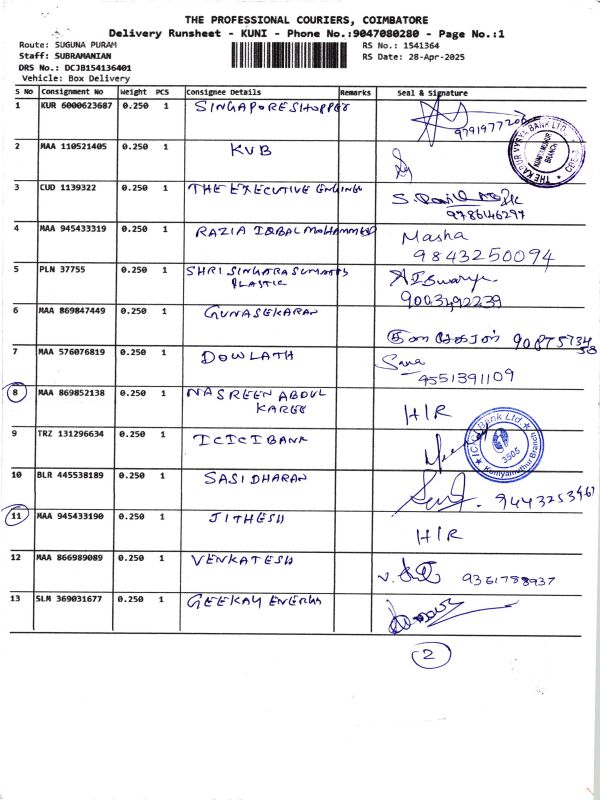 THE PROFESSIONAL COURIERS, COIMBATORE
Delivery Runsheet - KUNI - Phone No.:9047080280 - Page No.:1
Route: SUGUNA PURAM RS No.: 1541364
Staff: SUBRAMANIAN RS Date: 28-Apr-2025
DRS No.: DCJB154136401
Vehicle: Box Delivery
S No Consignment No Weight PCS Consignee Details Remarks Seal & Signature
1 KUR 6000623687 0.250 1 SINGAPORESHOPPER 9791977206
THE KARUR VYSYA BANK LTD. KUNIAMUTHUR BRANCH
2 MAA 110521405 0.250 1 KVB
3 CUD 1139322 0.250 1 THE EXECUTIVE ENGINEER
9786146297
4 MAA 945433319 0.250 1 RAZIA IQBAL MOHAMMED Masha
9843250094
5 PLN 37755 0.250 1 SHRI SINGARA SUMATHS AISwarya
PLASTIC 9003492239
6 MAA 869847449 0.250 1 GUNASEKARAN
குணசேகரன்
7 MAA 576076819 0.250 1 DOWLATH Sana
9551391109
8 MAA 869852138 0.250 1 NASREEN ABDUL
KAREE H/R
9 TRZ 131296634 0.250 1 ICICI BANK
ICICI Bank Ltd 3505 Kuniyamuthur Branch
10 BLR 445538189 0.250 1 SASIDHARAN 9443253461
11 MAA 945433190 0.250 1 JITHESH H/R
12 MAA 866989089 0.250 1 VENKATESH 9361788937
13 SLM 369031677 0.250 1 GEEKAY ENERGY
2